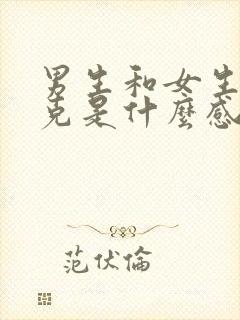 男生和女生
克是什麼感
范伏倫